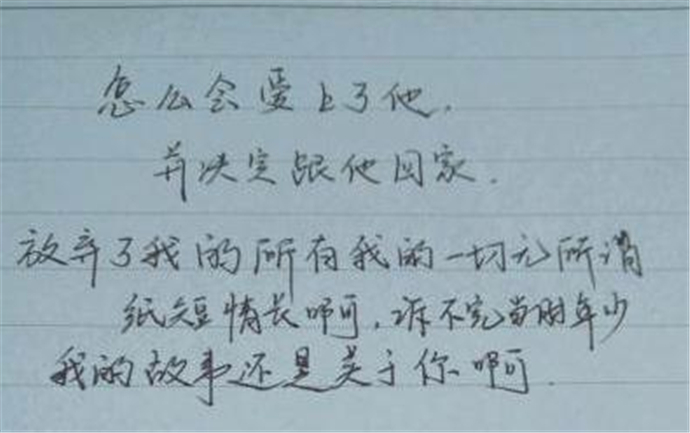 怎么会爱上了他,
并决定跟他回家.
放弃了我的所有我的一切无所谓
纸短情长啊,诉不完当时年少
我的故事还是关于你啊.